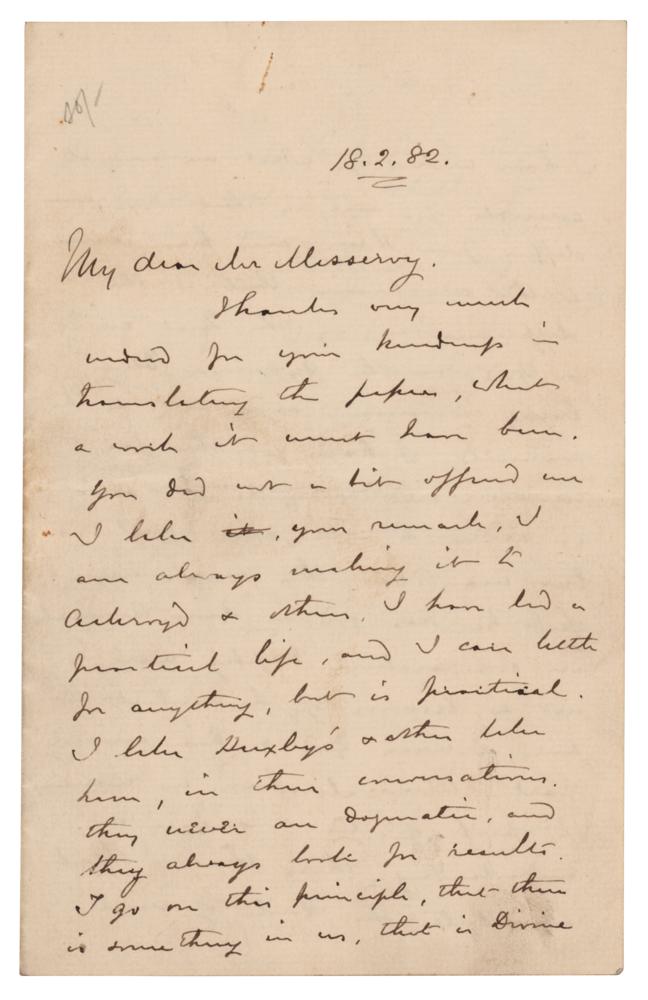 20/-
18.2.82.
My dear Mr Messervy.
Thanks very much
indeed for your kindness in
translating the papers, what
a work it must have been.
You did not a bit offend me
I like it, your remark, I
am always making it to
Ackroyd & others. I have led a
practical life, and I care little
for anything, but is practical.
I like Huxley's & other like
him, in their conversations.
they never are dogmatic, and
they always look for results.
I go on this principle, that there
is something in us, that is Divine